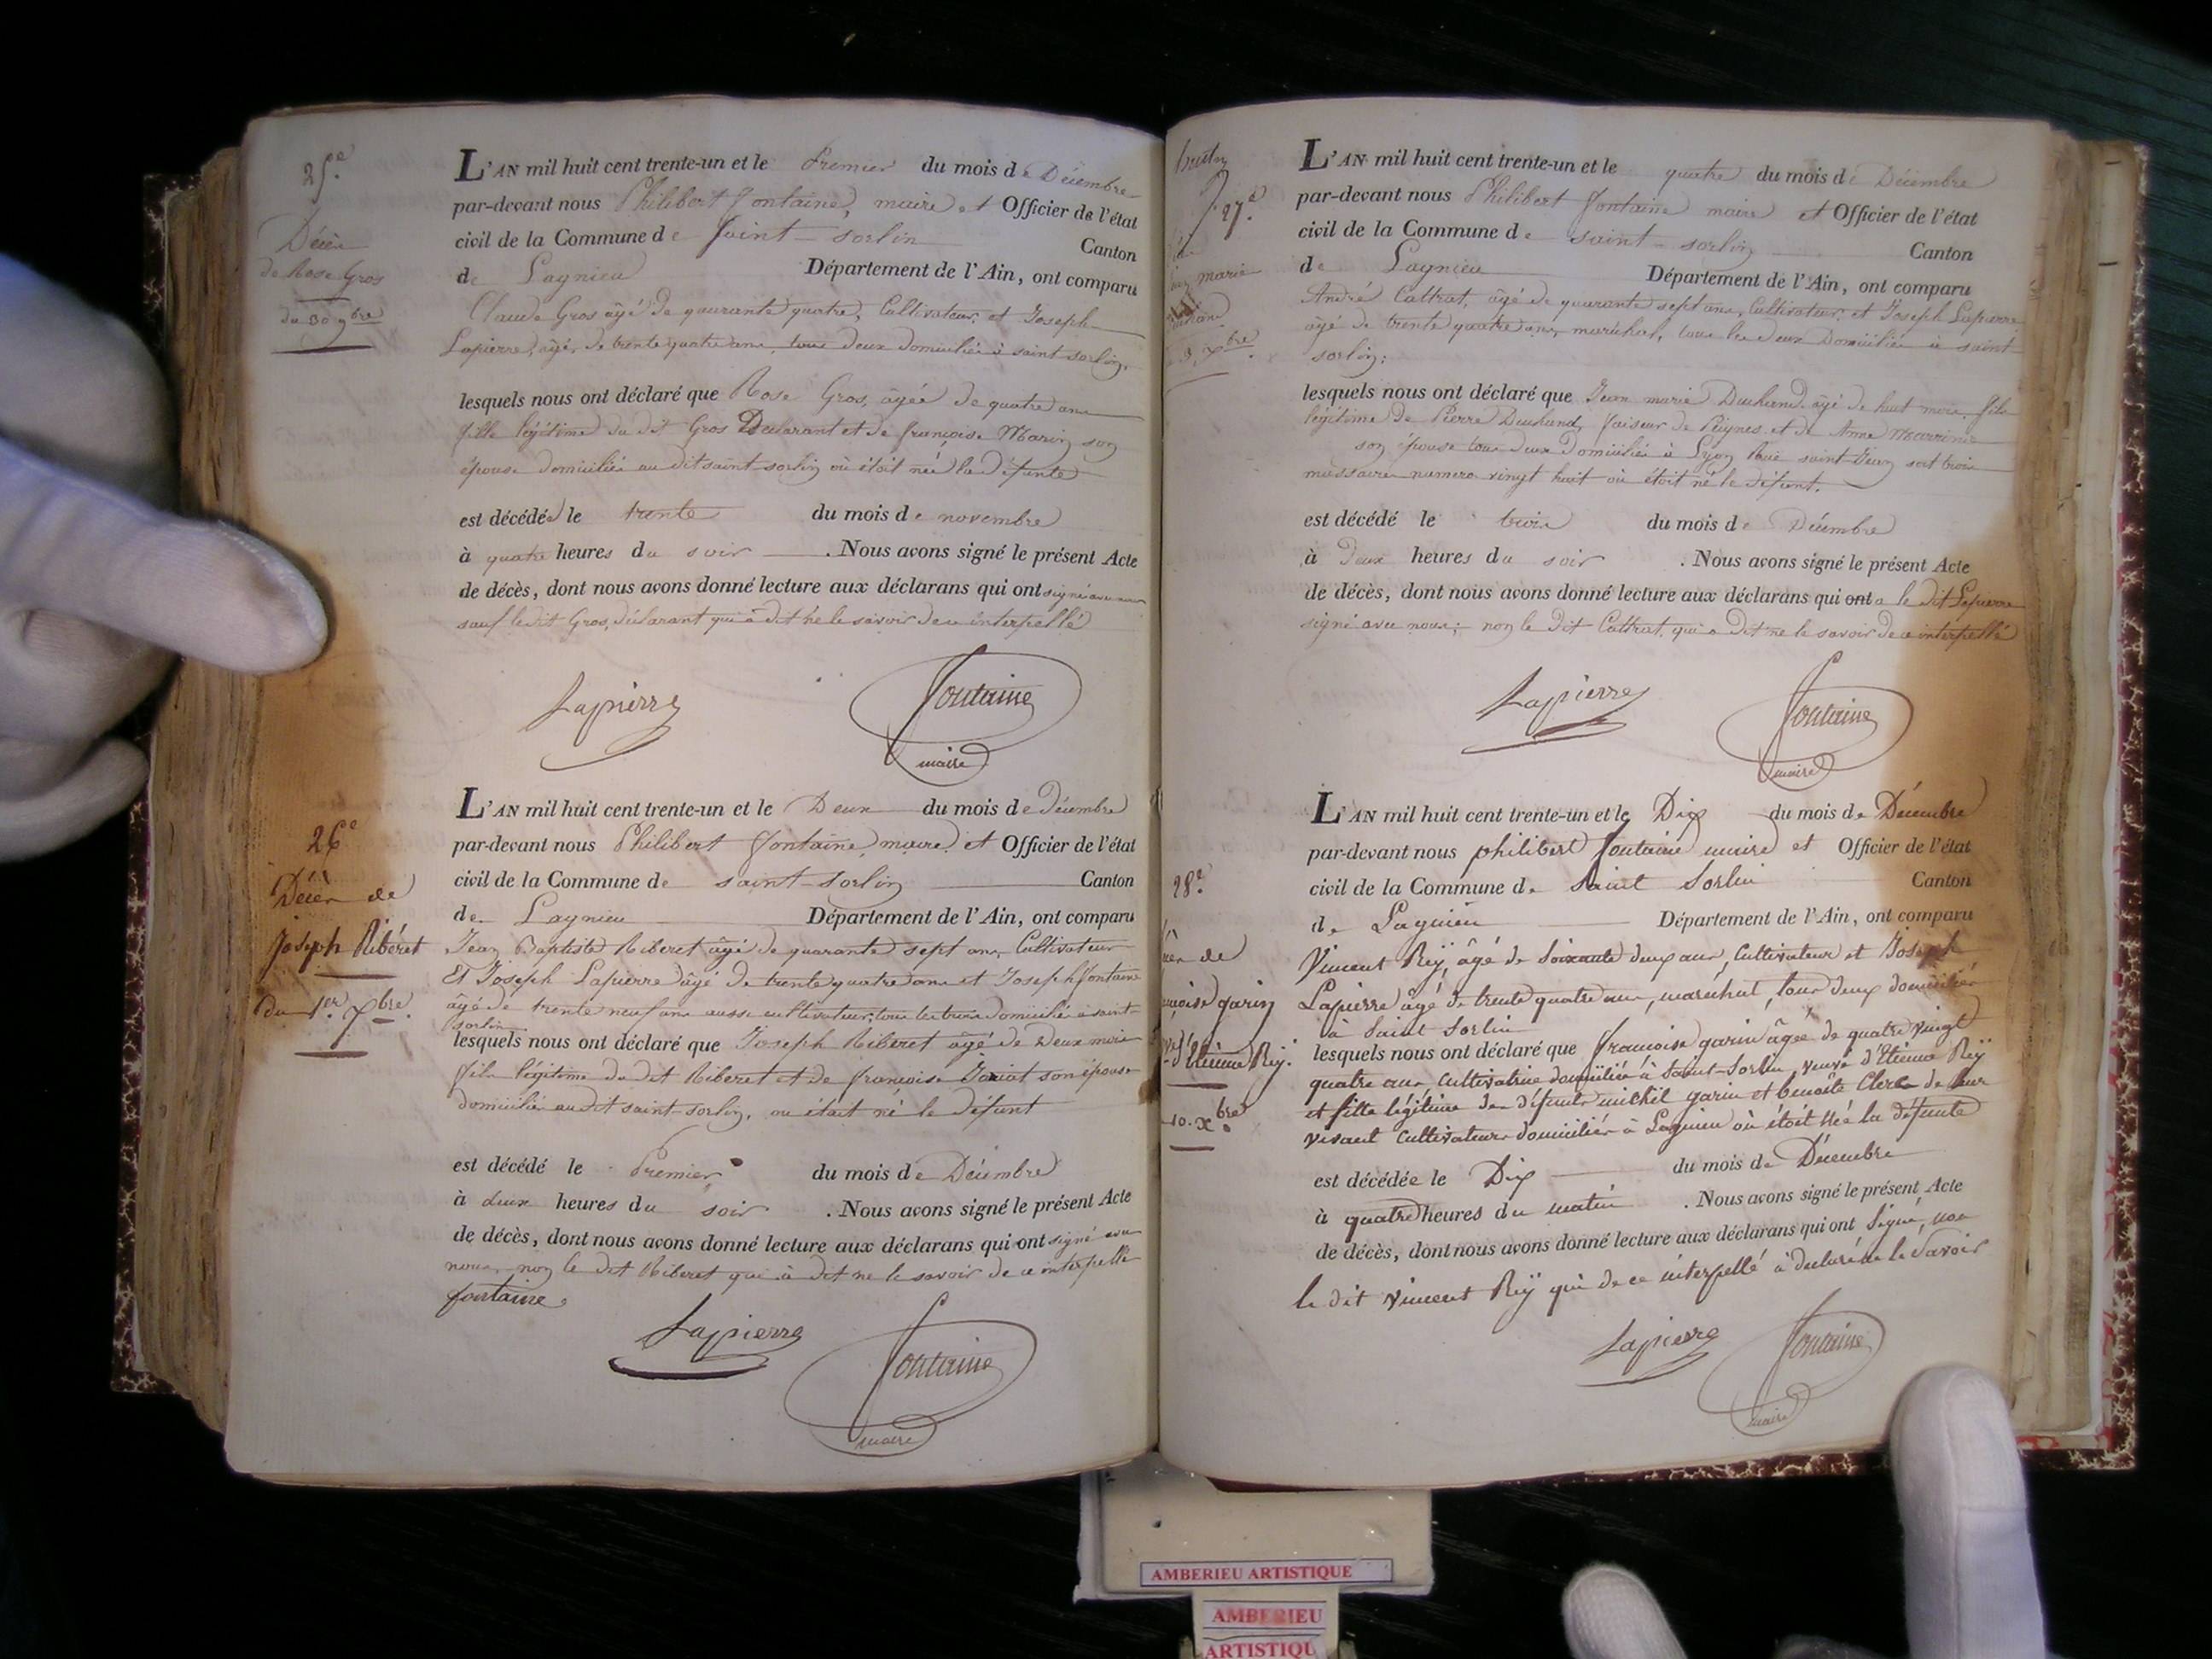 25.e
Décès
de Rose Gros
du 30 9bre
L'AN mil huit cent trente-un et le Premier du mois de Décembre
par-devant nous Philibert fontaine, maire et Officier de l'état
civil de la Commune de saint-sorlin Canton
de Lagnieu Département de l'Ain, ont comparu
Claude Gros âgé de quarante quatre, Cultivateur, et Joseph
Lapierre, âgé de trente quatre ans, tous deux domiciliés à saint sorlin,
lesquels nous ont déclaré que Rose Gros, âgée de quatre ans
fille légitime du dit Gros Declarant et de françoise Marin son
épouse domiciliés au dit saint-sorlin où étoit née la défunte
est décédée le trente du mois de novembre
à quatre heures du soir. Nous avons signé le présent Acte
de décès, dont nous avons donné lecture aux déclarans qui ont signé avec nous
sauf le dit Gros, déclarant qui a dit ne le savoir de ce interpellé
Lapierre fontaine
maire
26e
Décès de
Joseph Ribéret
du 1er Xbre.
L'AN mil huit cent trente-un et le Deux du mois de Décembre
par-devant nous Philibert fontaine, maire et Officier de l'état
civil de la Commune de saint-sorlin Canton
de Lagnieu Département de l'Ain, ont comparu
Jean Baptiste Riberet âgé de quarante sept ans, Cultivateur
Et Joseph Lapierre âgé de trente quatre ans et Joseph fontaine
âgé de trente neuf ans aussi cultivateur, tous les trois domiciliés à saint-
sorlin
lesquels nous ont déclaré que Joseph Riberet âgé de Deux mois
fils légitime du dit Riberet et de françoise son épouse
domiciliés au dit saint-sorlin, ou était né le défunt
est décédé le Premier du mois de Décembre
à deux heures du soir. Nous avons signé le présent Acte
de décès, dont nous avons donné lecture aux déclarans qui ont signé avec
nous, non le dit Riberet qui à dit ne le savoir de ce interpellé
fontaine
Lapierre fontaine
maire
27.e
marie
3 Xbre.
L'AN mil huit cent trente-un et le quatre du mois de Décembre
par-devant nous Philibert fontaine maire et Officier de l'état
civil de la Commune de saint-sorlin Canton
de Lagnieu Département de l'Ain, ont comparu
André Cattrat, âgé de quarante sept ans, Cultivateur, et Joseph Lapierre
âgé de trente quatre ans, maréchal, tous les deux Domiciliés à saint
sorlin;
lesquels nous ont déclaré que Jean marie Durhand âgé de huit mois, fils
légitime de Pierre Durhand, faiseur de Peignes et de Anne
son épouse tous deux domiciliés à Lyon Rue saint-Jean
numero vingt huit où étoit né le défunt.
est décédé le trois du mois de Décembre
à Deux heures du soir. Nous avons signé le présent Acte
de décès, dont nous avons donné lecture aux déclarans qui ont a le dit Lapierre
signé avec nous; non le Dit Cattrat, qui a dit ne le savoir de ce interpellé
Lapierre fontaine
maire
28.e
de
garin
d'Etienne Reÿ.
10. Xbre
L'AN mil huit cent trente-un et le Dix du mois de Décembre
par-devant nous philibert fontaine maire et Officier de l'état
civil de la Commune de Saint Sorlin Canton
de Lagnieu Département de l'Ain, ont comparu
Vincent Reÿ, âgé de Soixante deux ans, Cultivateur et Joseph
Lapierre âgé de trente quatre ans, maréchal, tous deux domiciliés
à Saint Sorlin
lesquels nous ont déclaré que françoise garin âgée de quatre vingt
quatre ans cultivatrice domiciliée à Saint-Sorlin, veuve d'Etienne Reÿ
et fille légitime des défunts michel garin et benoîte Clerc de leur
vivant Cultivateurs domiciliés à Lagnieu où étoit née la défunte
est décédée le Dix du mois de Décembre
à quatre heures du matin. Nous avons signé le présent Acte
de décès, dont nous avons donné lecture aux déclarans qui ont Signé, non
le dit vincent Reÿ qui de ce interpellé à déclaré ne le Savoir
Lapierre fontaine
maire
AMBERIEU ARTISTIQUE
AMBERIEU
ARTISTIQU